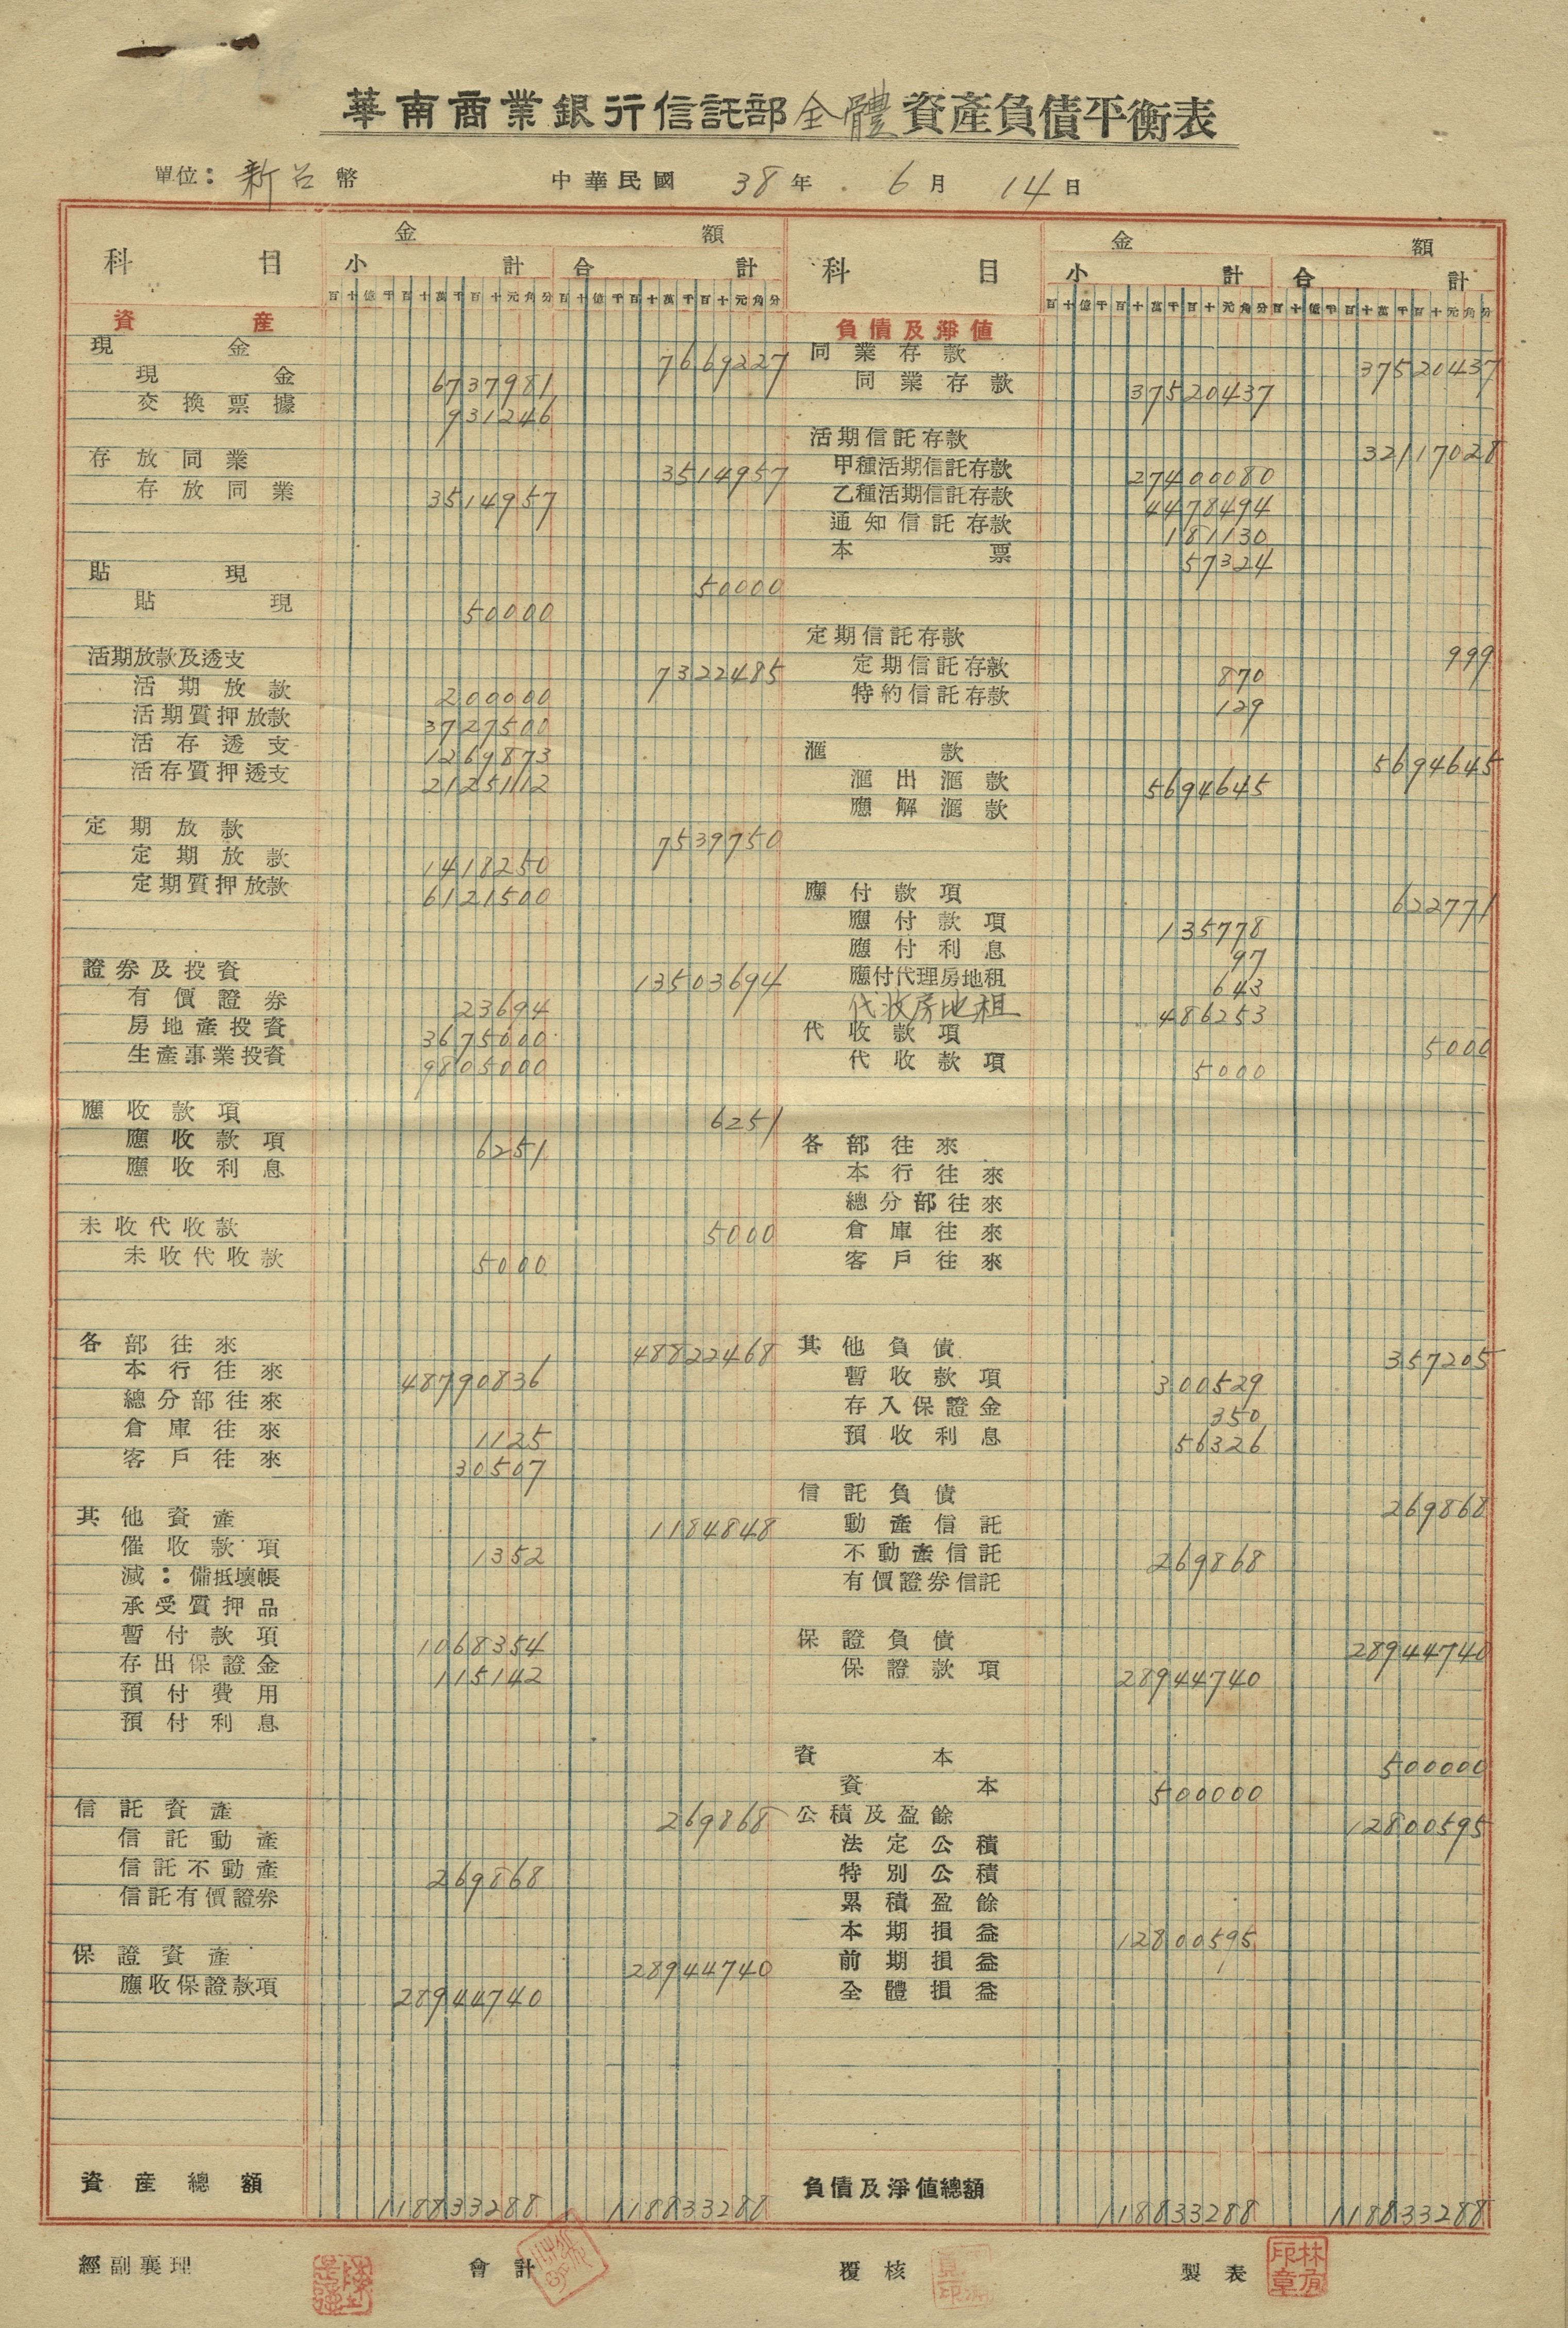 華南商業銀行信託部全體資產負債平衡表
單位：新台幣 中華民國 38年 6月 14日
科目 金額 科目 金額
小計 合計 小計 合計
百十億千百十萬千百十元角分 百十億千百十萬千百十元角分 百十億千百十萬千百十元角分 百十億千百十萬千百十元角分
資產
現金 7669227
現金 6737981
交換票據 931246
存放同業 3514957
存放同業 3514957
貼現 50000
貼現 50000
活期放款及透支 7322485
活期放款 200000
活期質押放款 3727500
活存透支 1269873
活存質押透支 2125112
定期放款 7539750
定期放款 1418250
定期質押放款 6121500
證券及投資 13503694
有價證券 23694
房地產投資 3675000
生產事業投資 9805000
應收款項 6251
應收款項 6251
應收利息
未收代收款 5000
未收代收款 5000
各部往來 48822468
本行往來 48790836
總分部往來
倉庫往來 1125
客戶往來 30507
其他資產 1184848
催收款項 1352
減：備抵壞帳
承受質押品
暫付款項 1068354
存出保證金 115142
預付費用
預付利息
信託資產 269868
信託動產
信託不動產 269868
信託有價證券
保證資產 28944740
應收保證款項 28944740
資產總額 118833288 118833288
負債及淨值
同業存款 37520437
同業存款 37520437
活期信託存款 32117028
甲種活期信託存款 27400080
乙種活期信託存款 4478494
通知信託存款 181130
本票 57324
定期信託存款 999
定期信託存款 870
特約信託存款 129
滙款 5694645
滙出滙款 5694645
應解滙款
應付款項 622771
應付款項 135778
應付利息 97
應付代理房地租 643
代收房地租 486253
代收款項 5000
代收款項 5000
各部往來
本行往來
總分部往來
倉庫往來
客戶往來
其他負債 357205
暫收款項 300529
存入保證金 350
預收利息 56326
信託負債 269868
動產信託
不動產信託 269868
有價證券信託
保證負債 28944740
保證款項 28944740
資本 500000
資本 500000
公積及盈餘 12800595
法定公積
特別公積
累積盈餘
本期損益 12800595
前期損益
全體損益
負債及淨值總額 118833288 118833288
經副襄理 會計 覆核 製表